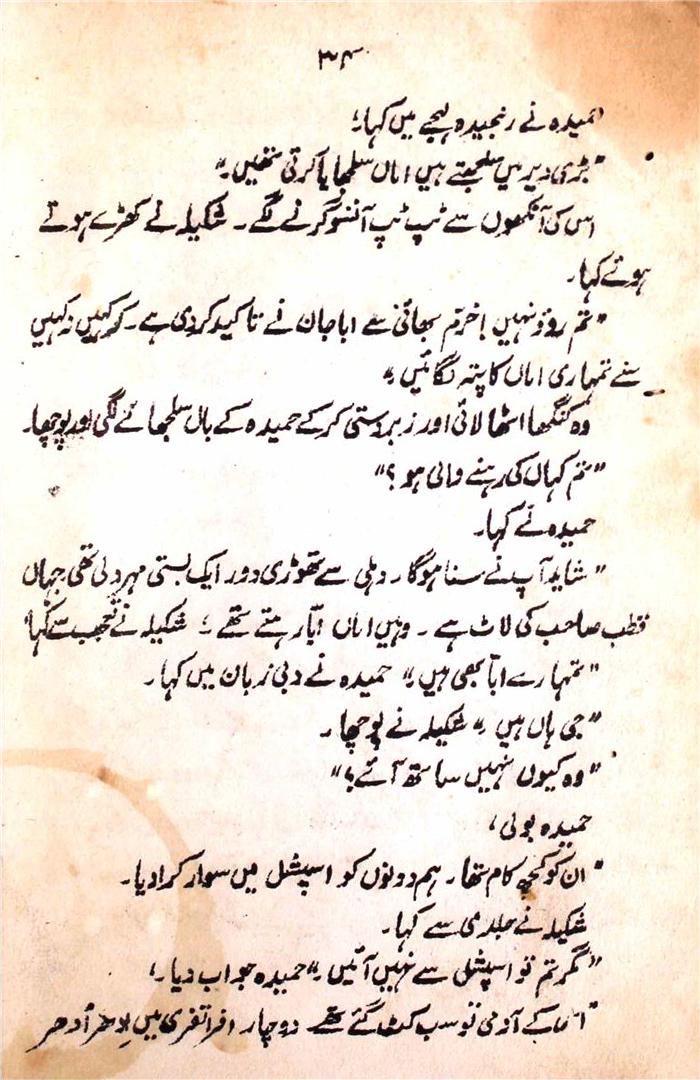 ۳۴
حمیدہ نے رنجیدہ لہجے میں کہا؛
"بڑی دیر میں سلجھتے ہیں اماں سلجھایا کرتی تھیں۔"
اس کی آنکھوں سے ٹپ ٹپ آنسو گرنے لگے۔ شکیلہ نے کھڑے ہوتے
ہوئے کہا۔
"تم روؤ نہیں! خرم بھائی سے ابا جان نے تاکید کردی ہے۔ کہ کہیں نہ کہیں
سے تمہاری اماں کا پتہ لگائیں۔"
وہ کنگھا اٹھا لائی اور زبردستی کرکے حمیدہ کے بال سلجھانے لگی اور پوچھا۔
"تم کہاں کی رہنے والی ہو؟"
حمیدہ نے کہا۔
"شاید آپ نے سنا ہوگا۔ دہلی سے تھوڑی دور ایک بستی مہرولی تھی جہاں
قطب صاحب کی لاٹ ہے۔ وہیں اماں ابّا رہتے تھے؛ شکیلہ نے تعجب سے کہا
"تمہارے ابّا بھی ہیں۔" حمیدہ نے دبی زبان میں کہا۔
"جی ہاں ہیں۔" شکیلہ نے پوچھا۔
"وہ کیوں نہیں ساتھ آئے؟"
حمیدہ بولی،
"ان کو کچھ کام تھا۔ ہم دونوں کو اسپشل میں سوار کرا دیا۔
شکیلہ نے جلدی سے کہا۔
"مگر تم تو اسپشل سے نہیں آئیں۔" حمیدہ جواب دیا۔،
"اس کے آدمی تو سب کٹ گئے تھے۔ دو چار افراتفری میں اِدھر اُدھر